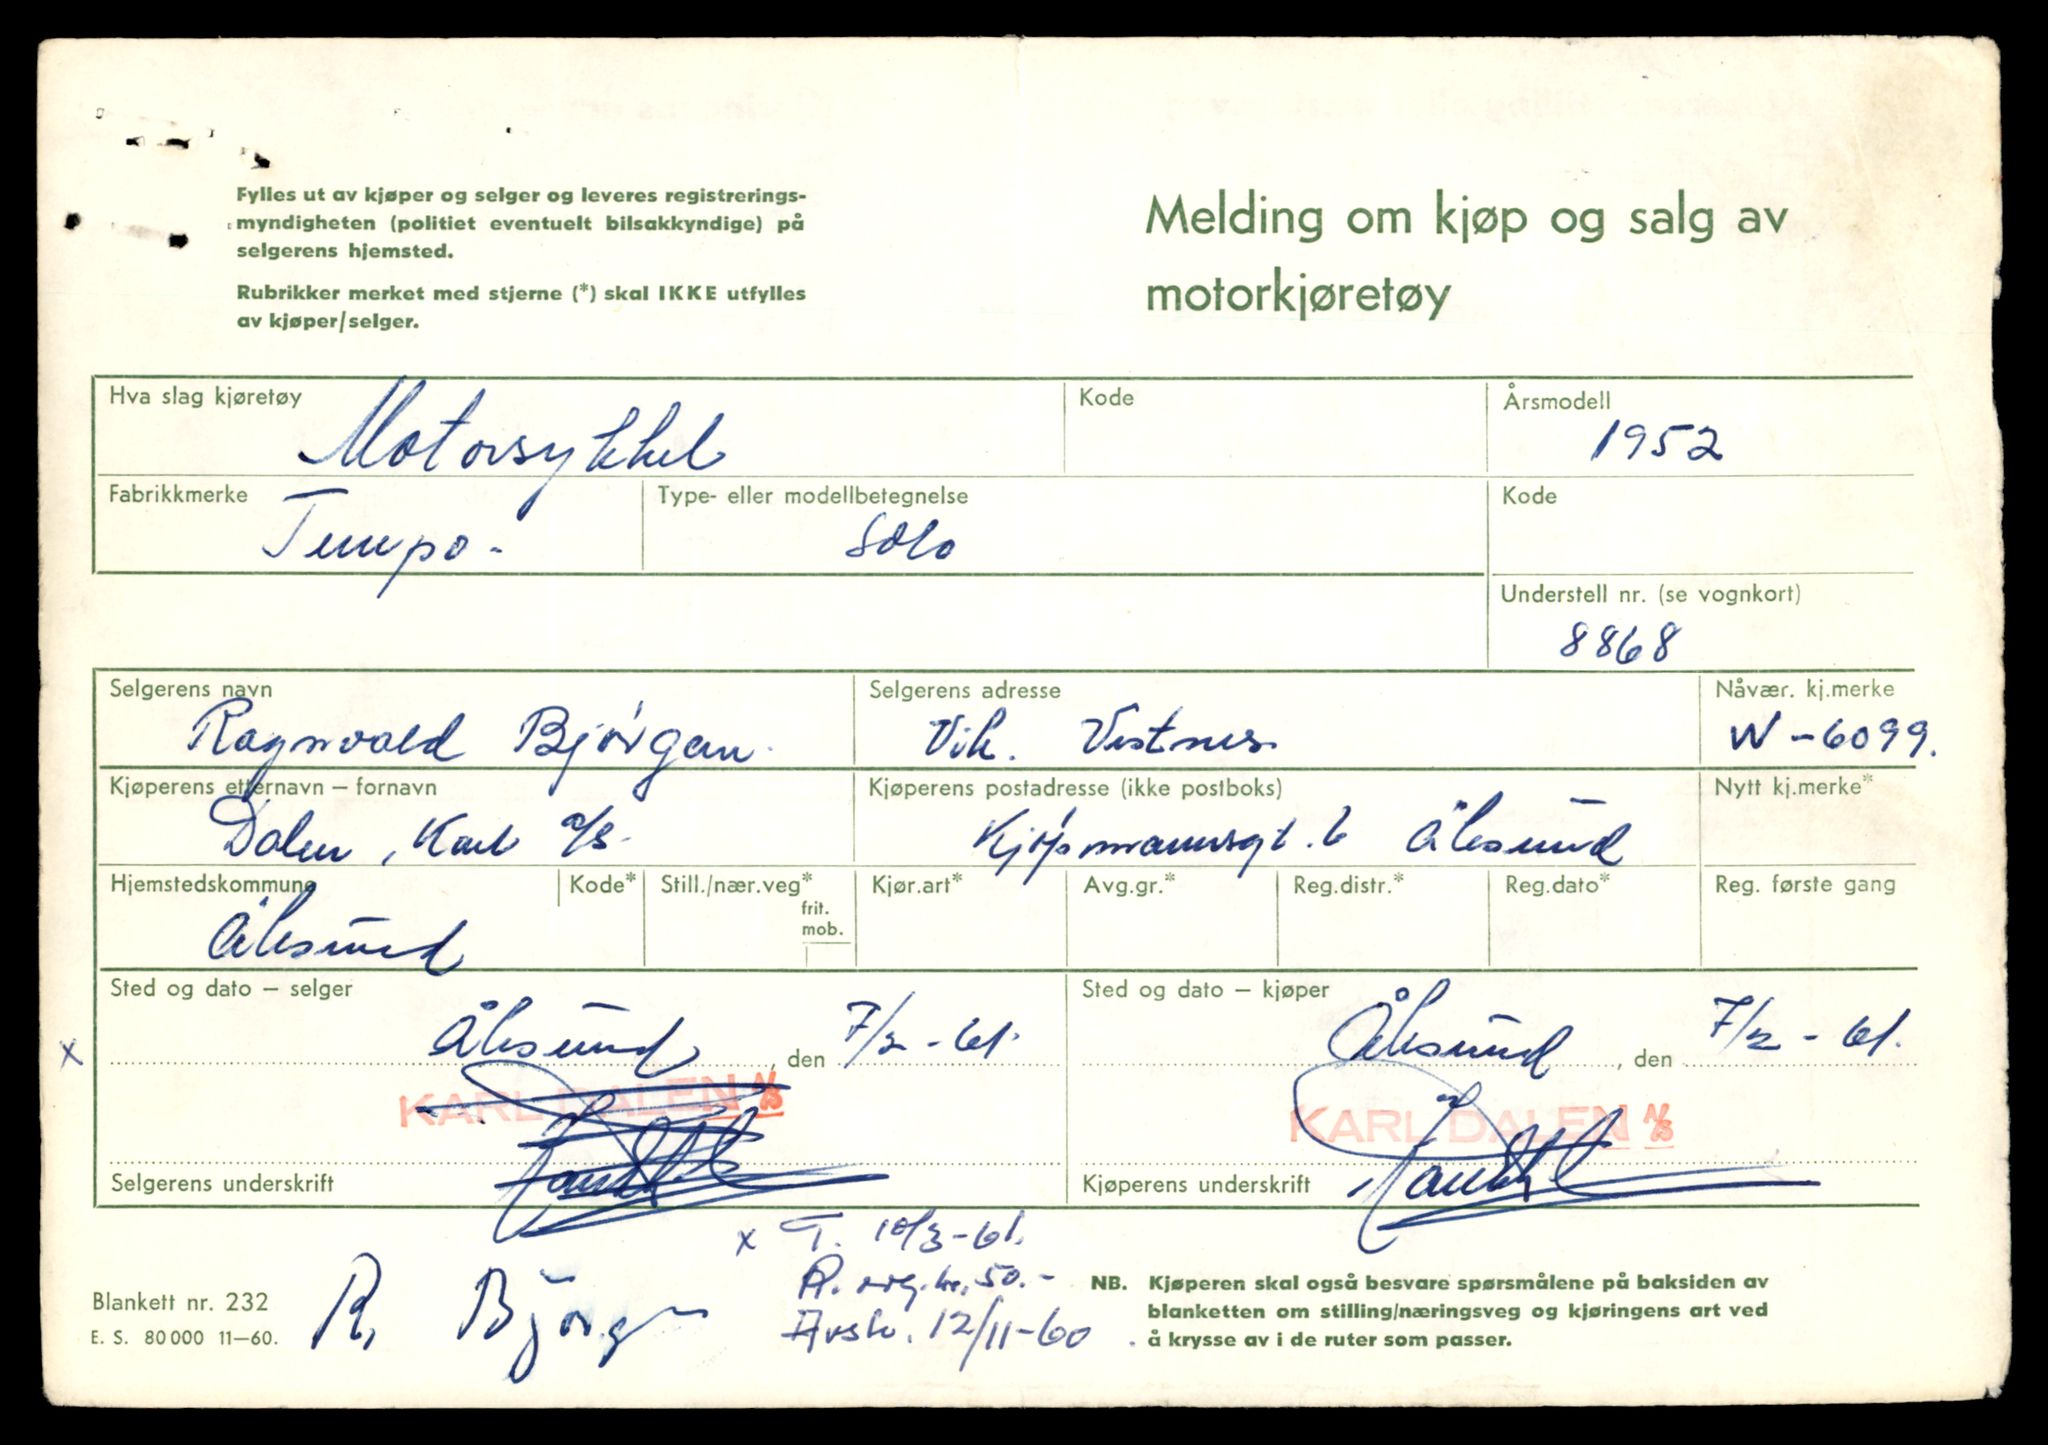 Fylles ut av kjøper og selger og leveres registrerings-
myndigheten (politiet eventuelt bilsakkyndige) på
selgerens hjemsted.
Rubrikker merket med stjerne (*) skal IKKE utfylles
av kjøper/selger.
Melding om kjøp og salg av
motorkjøretøy
Hva slag kjøretøy
Motorsykkel
Kode
Årsmodell
1952
Fabrikkmerke
Tempo -
Type- eller modellbetegnelse
Solo
Kode
Understell nr. (se vognkort)
8868
Selgerens navn
Ragnvald Bjørgan.
Selgerens adresse
Vik. Vestnes
Nåvær. kj.merke
W-6099.
Kjøperens etternavn – fornavn
Dalen, Karl a/s.
Kjøperens postadresse (ikke postboks)
Kjøpmannsgt. 6 Ålesund
Nytt kj.merke*
Hjemstedskommune
Ålesund
Kode*
Still./nær.veg*
frit.
mob.
Kjør.art*
Avg.gr.*
Reg.distr.*
Reg.dato*
Reg. første gang
Sted og dato – selger
x Ålesund, den 7/2-61.
KARL DALEN A/S
Selgerens underskrift
Sted og dato – kjøper
Ålesund, den 7/2-61.
KARL DALEN A/S
Kjøperens underskrift
x T. 10/3-61.
R. avg. kr. 50.-
Avsk. 12/11-60
R. Bjørgan
Blankett nr. 232
E. S. 80 000 11—60.
NB. Kjøperen skal også besvare spørsmålene på baksiden av
blanketten om stilling/næringsveg og kjøringens art ved
å krysse av i de ruter som passer.